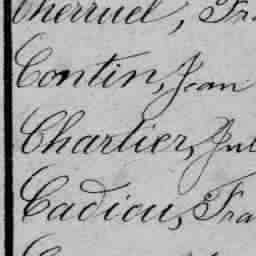 Cherruel, Fr
Contin, Jean
Chartier, Jul
Cadiou, Fra